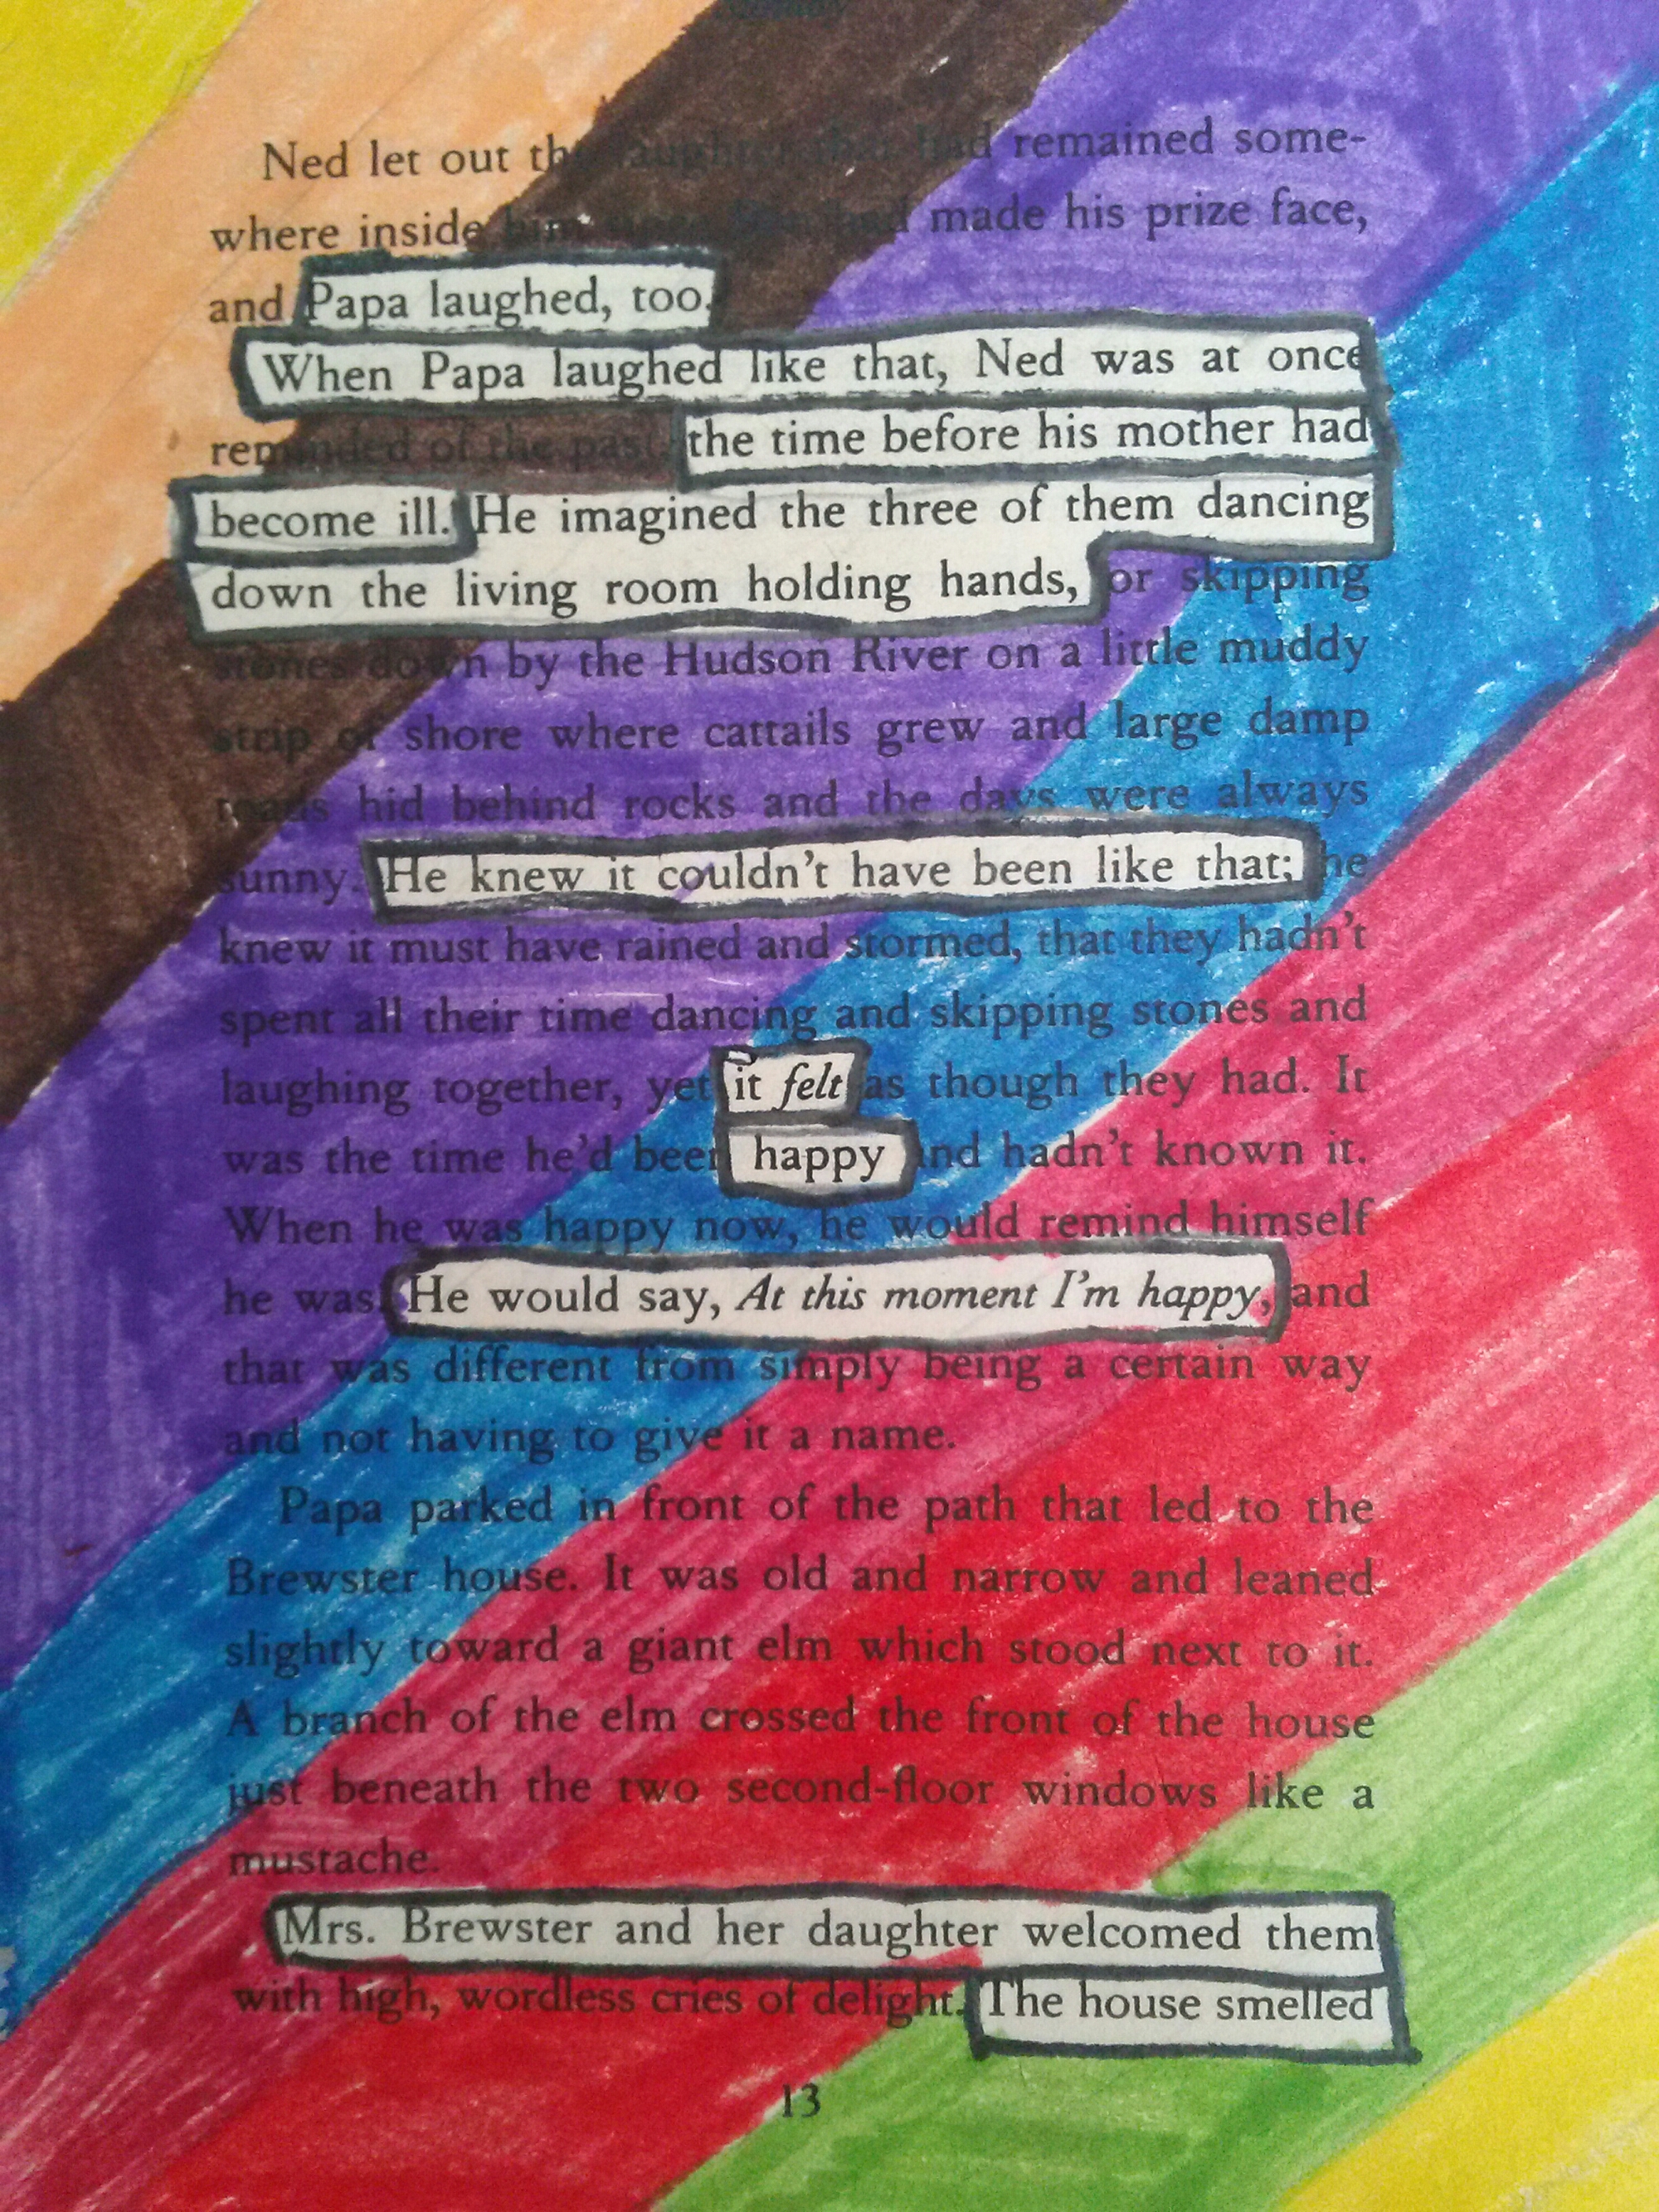 Ned let out the laughter that had remained some-
where inside him since Ben had made his prize face,
and Papa laughed, too.
When Papa laughed like that, Ned was at once
reminded of the past, the time before his mother had
become ill. He imagined the three of them dancing
down the living room holding hands, or skipping
stones down by the Hudson River on a little muddy
strip of shore where cattails grew and large damp
toads hid behind rocks and the days were always
sunny. He knew it couldn't have been like that; he
knew it must have rained and stormed, that they hadn't
spent all their time dancing and skipping stones and
laughing together, yet it felt as though they had. It
was the time he'd been happy and hadn't known it.
When he was happy now, he would remind himself
he was. He would say, At this moment I'm happy, and
that was different from simply being a certain way
and not having to give it a name.
Papa parked in front of the path that led to the
Brewster house. It was old and narrow and leaned
slightly toward a giant elm which stood next to it.
A branch of the elm crossed the front of the house
just beneath the two second-floor windows like a
mustache.
Mrs. Brewster and her daughter welcomed them
with high, wordless cries of delight. The house smelled
13